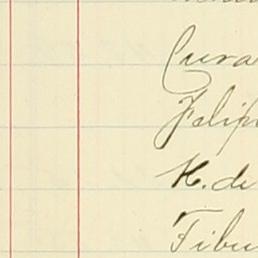 Cura
Felip
H. de
Tibu